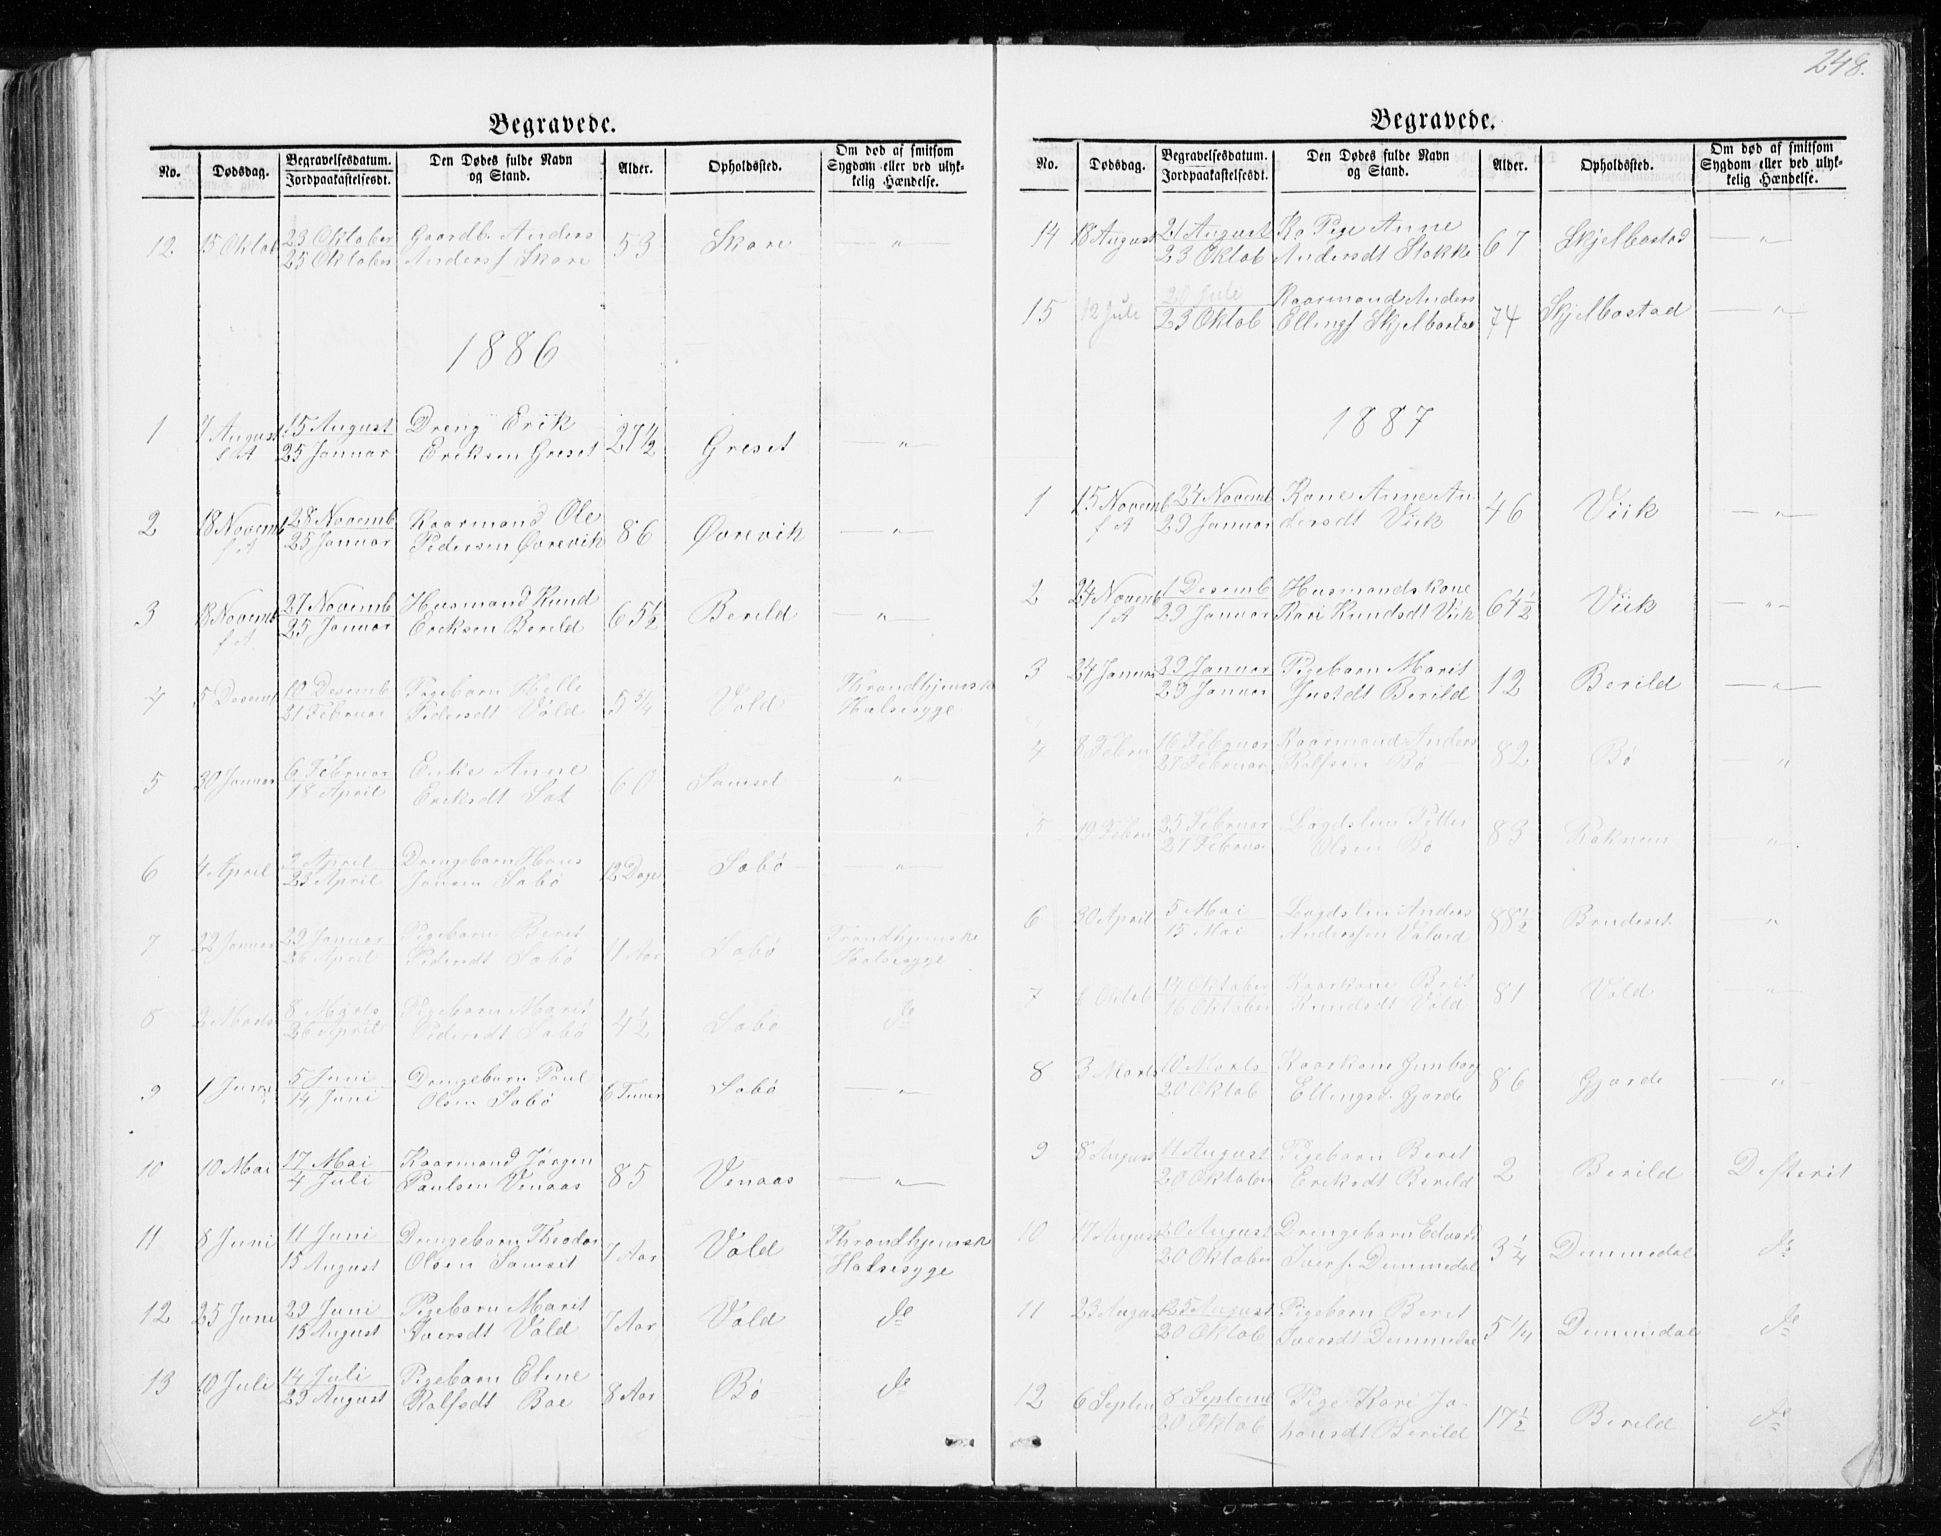 248.
Begravede.
No. Dødsdag. Begravelsesdatum. Jordpaakastelsesdt. Den Dødes fulde Navn og Stand. Alder. Opholdssted. Om død af smitsom Sygdom eller ved ulykkelig Hændelse.
12. 15 Oktob 23 Oktober Gaardb. Anders 53 Skare — " —
25 Oktober Anders Skare
1886
1 7 August 15 August Dreng Erik 27 1/2 Greset — " —
f A 25 Januar Eriksen Greset
2 18 Novemb 28 Novemb Kaarmand Ole 86 Øvrevik — " —
f A 25 Januar Pedersen Øvrevik
3 18 Novemb 27 Novemb Husmand Knud 65 1/2 Berild — " —
f A. 25 Januar Eriksen Berild
4 5 Desemb 10 Desemb Pigebarn Helle 5 3/4 Vold Throndhjemsk
21 Februar Pedersdt Vold Halsesyge
5 30 Januar 6 Februar Enke Anne 60 Samset "
18 April Eriksdt
6 4 April 9 April Drengebarn Hans 12 Dage Sæbø — " —
23 April Jansen Sæbø
7 22 Januar 29 Januar Pigebarn Beret 11 Aar Sæbø Trondhjemske
26 April Pedersdt Sæbø Halsesyge
8 2 Marts 8 Marts Pigebarn Marit 4 1/2 Sæbø do
26 April Pedersdt Sæbø
9 1 Juni 5 Juni Drengebarn Paul 6 Timer Sæbø — " —
14 Juni Olsen Sæbø
10 10 Mai 17 Mai Kaarmand Jørgen 85 Venaas — " —
4 Juli Paulsen Venaas
11 8 Juni 11 Juni Drengebarn Theodor 7 Aar Vold Throndhjemsk
15 August Olsen Samset Halsesyge
12 25 Juni 29 Juni Pigebarn Marit 7 Aar Vold do
15 August Iversdt Vold
13 10 Juli 14 Juli Pigebarn Eline 8 Aar Bø do
29 August Rolfsdt Boe
Begravede.
No. Dødsdag. Begravelsesdatum. Jordpaakastelsesdt. Den Dødes fulde Navn og Stand. Alder. Opholdssted. Om død af smitsom Sygdom eller ved ulykkelig Hændelse.
14 18 August 21 August Ka Pige Anne 67 Skjelbostad — " —
23 Oktob Andersdt Stokke
15 12 Juli 20 Juli Kaarmand Anders 74 Skjelbostad — " —
23 Oktob Ellings Skjelbostad
1887
1 15 Novemb 24 Novemb Kone Anne An- 46 Viik — " —
f A 29 Januar dersdt Viik
2 24 Novemb 1 Desemb Husmandskone 64 1/2 Viik — " —
f A 29 Januar Kari Knudsdt Viik
3 24 Januar 29 Januar Pigebarn Marit 12 Berild — " —
29 Januar Justdt Berild
4 8 Febru 16 Februar Kaarmand Anders 82 Bø "
27 Februar Rolfsen Bø
5 19 Febru 25 Februar Lægdslem Petter 83 "
27 Februar Olsen Bø
6 30 April 5 Mai Lægdslem Anders 88 1/2 Brudeset "
15 Mai Anderssen
7 6 Oktob 14 Oktober Kaarkone Brit 81 Vold — " —
16 Oktober Knudsdt Vold
8 3 Marts 10 Marts Kaarkone Gunborg 86 Gjørde — " —
20 Oktob Ellingsd. Gjørde
9 8 August 11 August Pigebarn Beret 2 Berild Defterit
20 Oktober Eriksdt Berild
10 17 August 20 August Drengebarn Edvard 3 1/4 Demmedal do
20 Oktober Ivers. Demmedal
11 23 August 25 August Pigebarn Beret 5 1/4 Demmedal do
20 Oktob Iversdt Demmedal
12 6 Septem 8 Septemb Pige Kari Jo- 17 1/2 Berild do
20 Oktob hansdt Berild